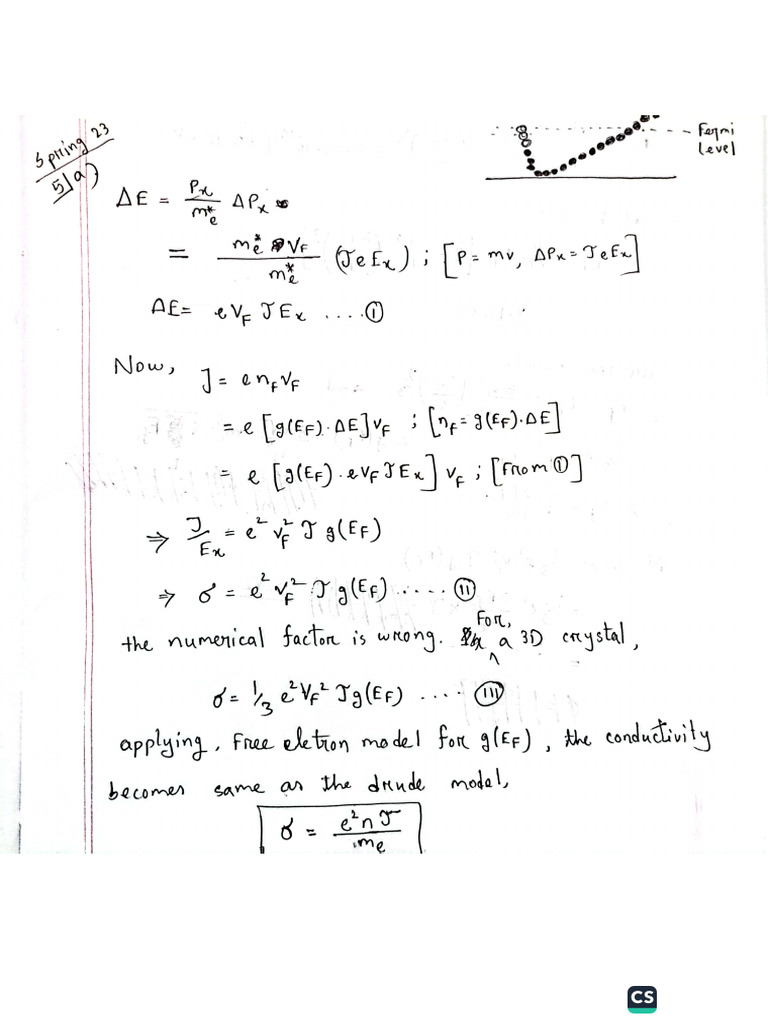 Spring 23
5(a)
Fermi
Level
ΔE = Px/m*e ΔPx
= m*e VF / m*e (τeEx) ; [P = mv, ΔPx = τeEx]
ΔE = eVF τEx .... ①
Now,
J = e nF VF
= e [g(EF) · ΔE] vF ; [nF = g(EF)·ΔE]
= e [g(EF) · eVF τEx] VF ; [From ①]
⇒ J/Ex = e² vF² τ g(EF)
⇒ σ = e² vF² τ g(EF) ..... ⑪
the numerical factor is wrong. For, a 3D crystal,
σ = 1/3 e² VF² τg(EF) .... ⑪I
applying, Free eletron model for g(EF), the conductivity
becomes same as the drude model,
σ = e²nτ / me
CS